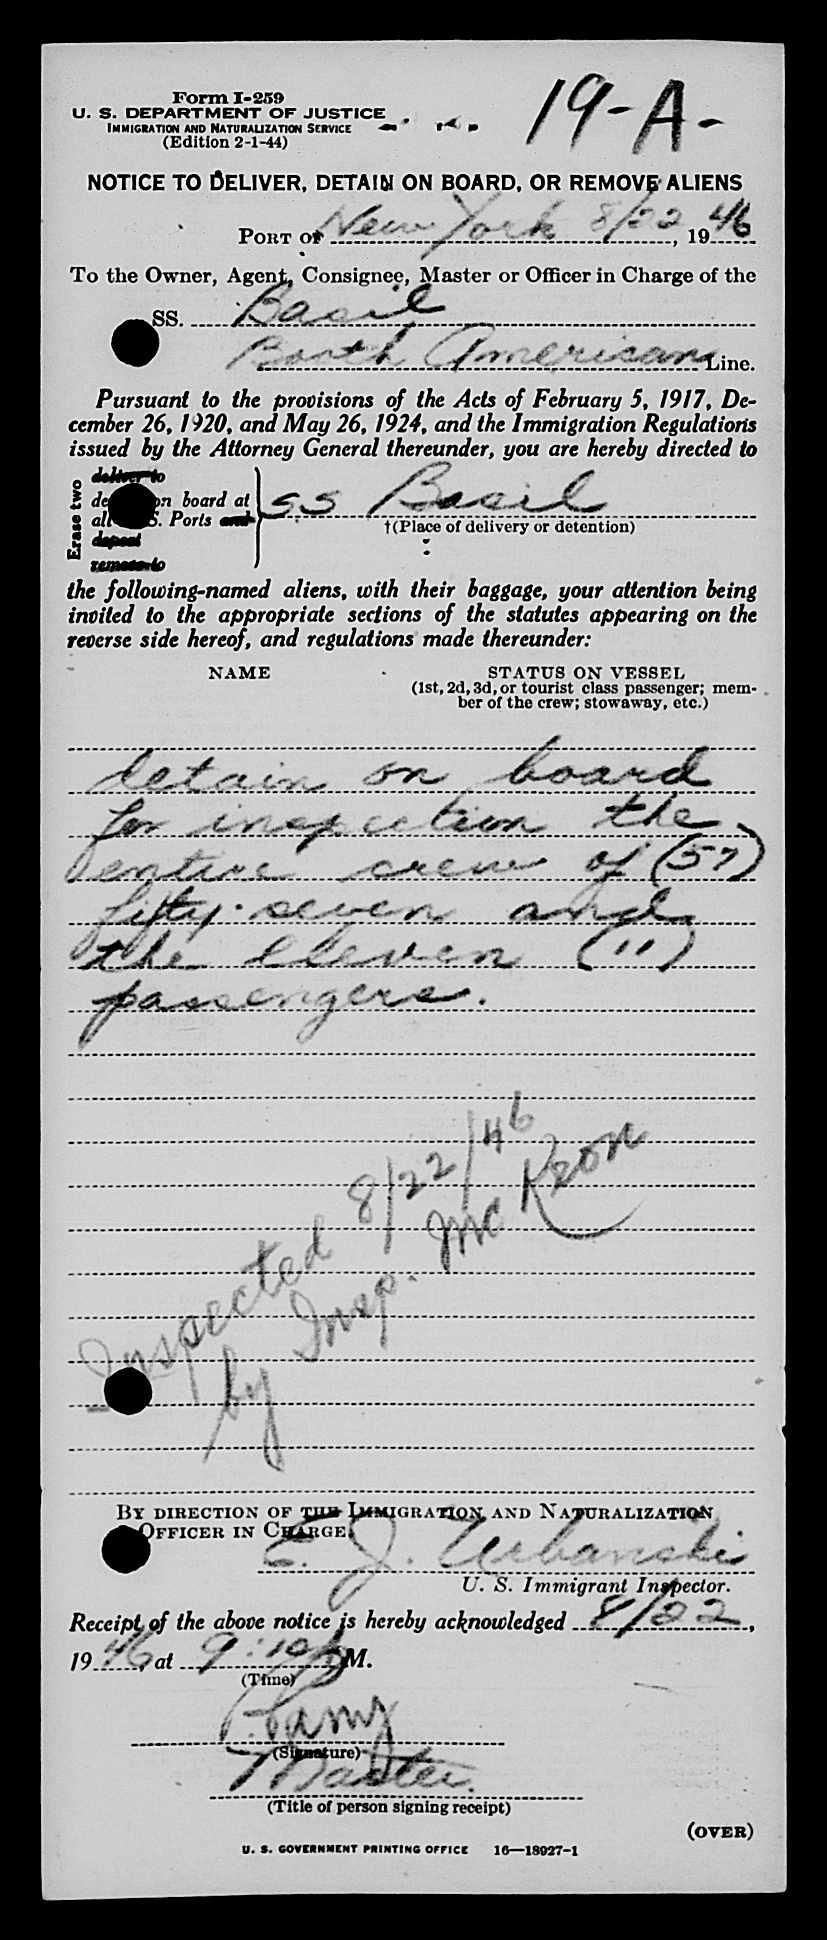 Form I-259
U. S. DEPARTMENT OF JUSTICE
IMMIGRATION AND NATURALIZATION SERVICE
(Edition 2-1-44)
19-A-
NOTICE TO DELIVER, DETAIN ON BOARD, OR REMOVE ALIENS
PORT OF New York 8/22, 1946
To the Owner, Agent, Consignee, Master or Officer in Charge of the
SS. Basil
Booth American Line.
Pursuant to the provisions of the Acts of February 5, 1917, De-
cember 26, 1920, and May 26, 1924, and the Immigration Regulations
issued by the Attorney General thereunder, you are hereby directed to
Erase two
deliver to
on board at
S. Ports and
depost
remove to
SS Basil
†(Place of delivery or detention)
the following-named aliens, with their baggage, your attention being
invited to the appropriate sections of the statutes appearing on the
reverse side hereof, and regulations made thereunder:
NAME STATUS ON VESSEL
(1st, 2d, 3d, or tourist class passenger; mem-
ber of the crew; stowaway, etc.)
detain on board
for inspection the
entire crew of (57)
fifty-seven and
the eleven (11)
passengers.
Inspected 8/22/46
by Insp. McKeon
BY DIRECTION OF THE IMMIGRATION AND NATURALIZATION
OFFICER IN CHARGE.
E. J. Urbanski
U. S. Immigrant Inspector.
Receipt of the above notice is hereby acknowledged 8/22,
1946, at 9:10 P M.
(Time)
(Signature)
Master.
(Title of person signing receipt)
(OVER)
U. S. GOVERNMENT PRINTING OFFICE 16—18927-1